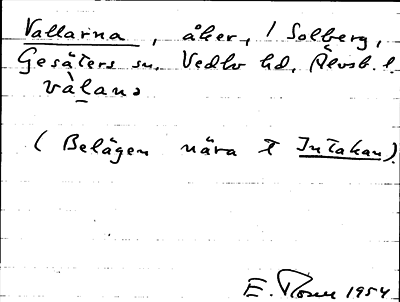 Vallarna, åker, / Solberg,
Gesäters sn. Vedbo hd, Älvsb. l.
vàlaṇa
(Belägen nära t Intakan).
E. 1954